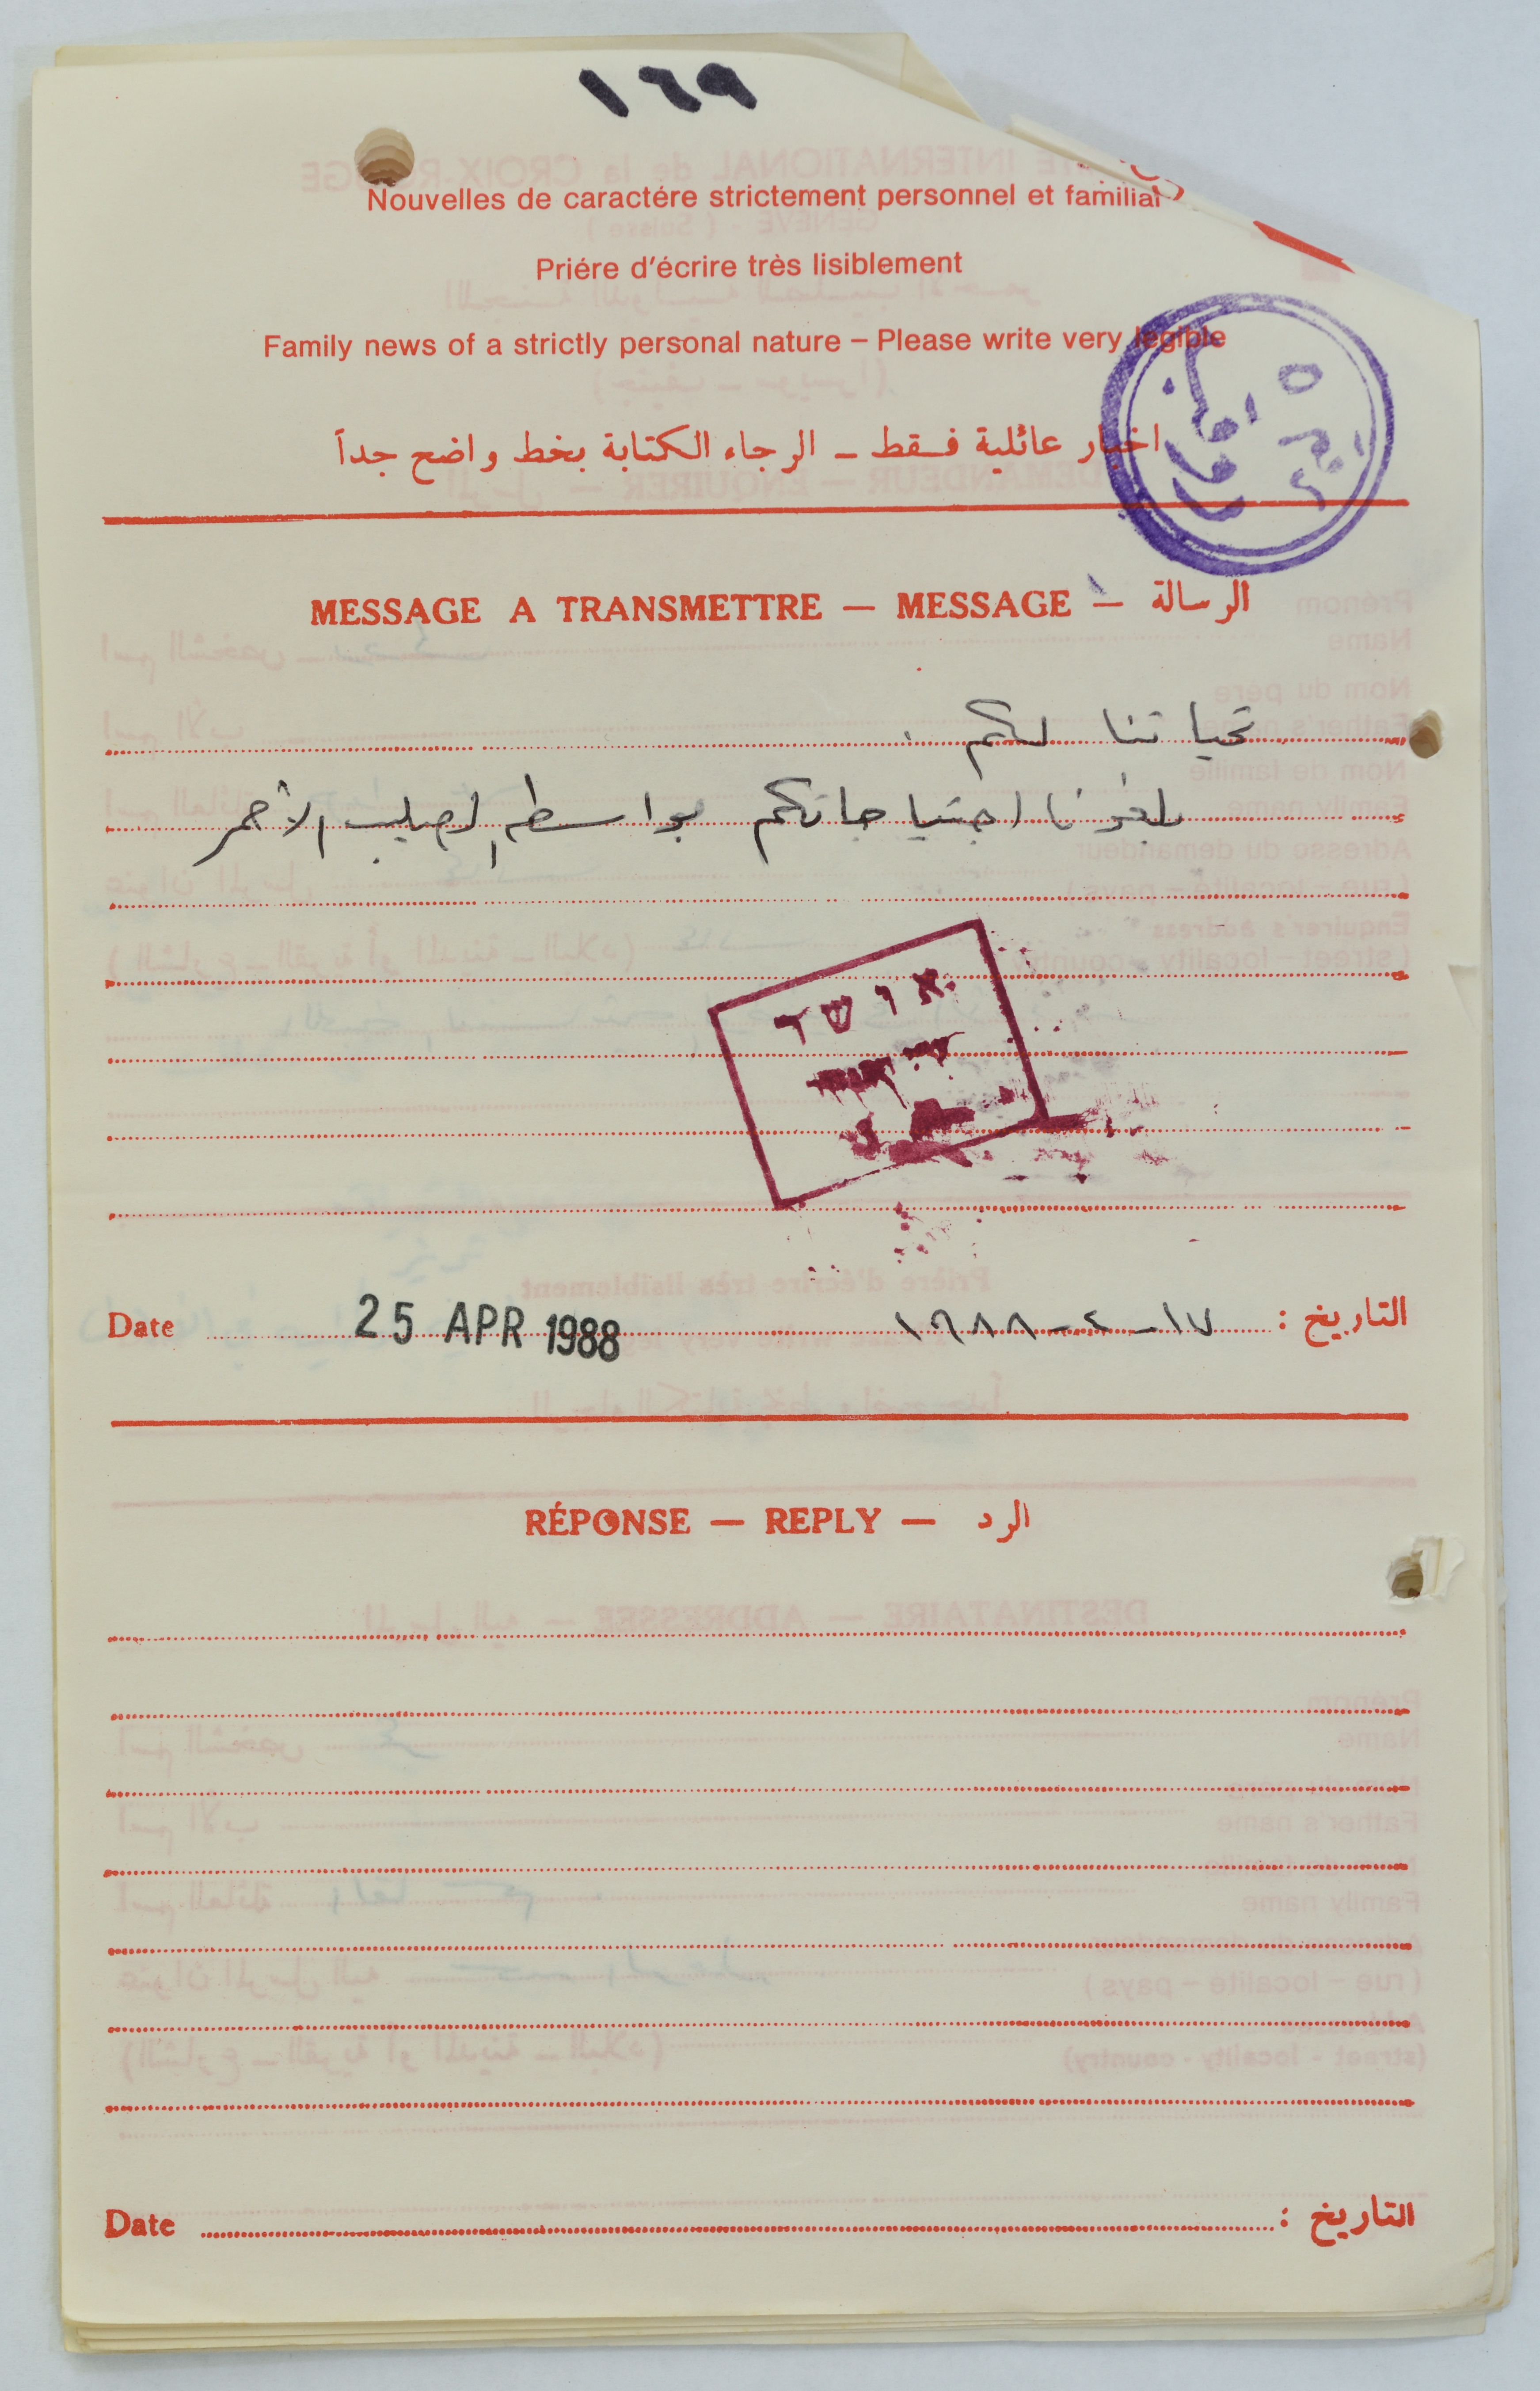 ١٦٩
Nouvelles de caractére strictement personnel et familial
Priére d'écrire très lisiblement
Family news of a strictly personal nature – Please write very legible
اخبار عائلية فقط – الرجاء الكتابة بخط واضح جداً
MESSAGE A TRANSMETTRE — MESSAGE — الرسالة
تحياتنا لكم .
بلغونا احتياجاتكم بواسطه الصليب الأحمر
אושר
Date 25 APR 1988 ١٧-٤-١٩٨٨ التاريخ :
RÉPONSE — REPLY — الرد
Date التاريخ :